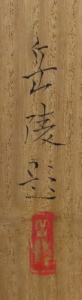 岳陵題